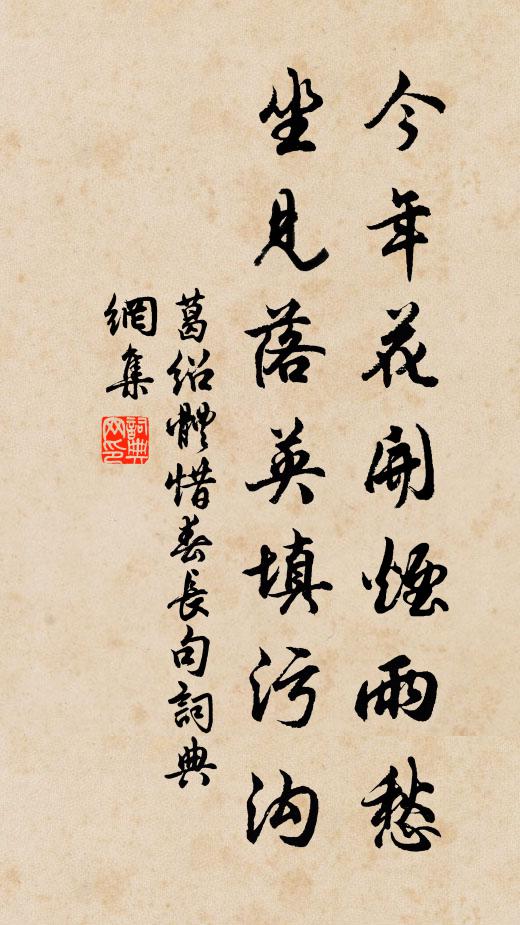 今年花開煙雨愁
坐見落英填污溝
葛紹體惜春長句詞典
網集
詞典網印